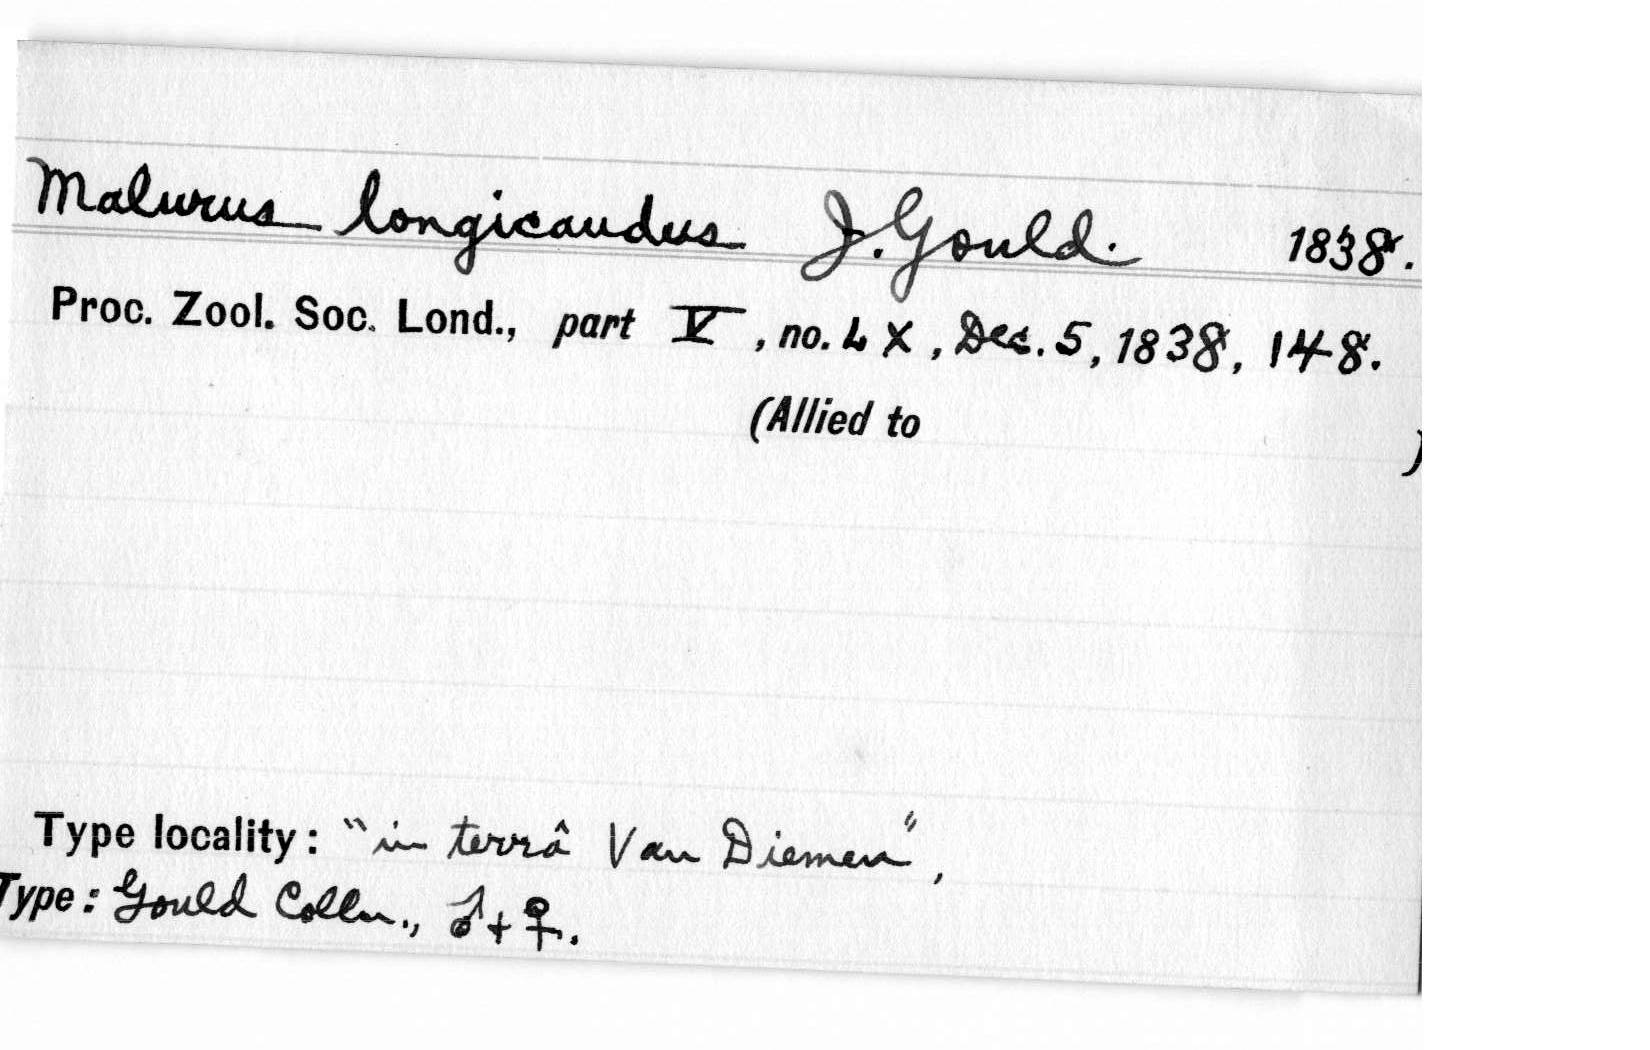 Malurus longicaudus J. Gould. 1838.
Proc. Zool. Soc. Lond., part V, no. LX, Dec. 5, 1838, 148.
(Allied to )
Type locality: "in terrâ Van Diemen",
Type: Gould Colln., ♂ + ♀.